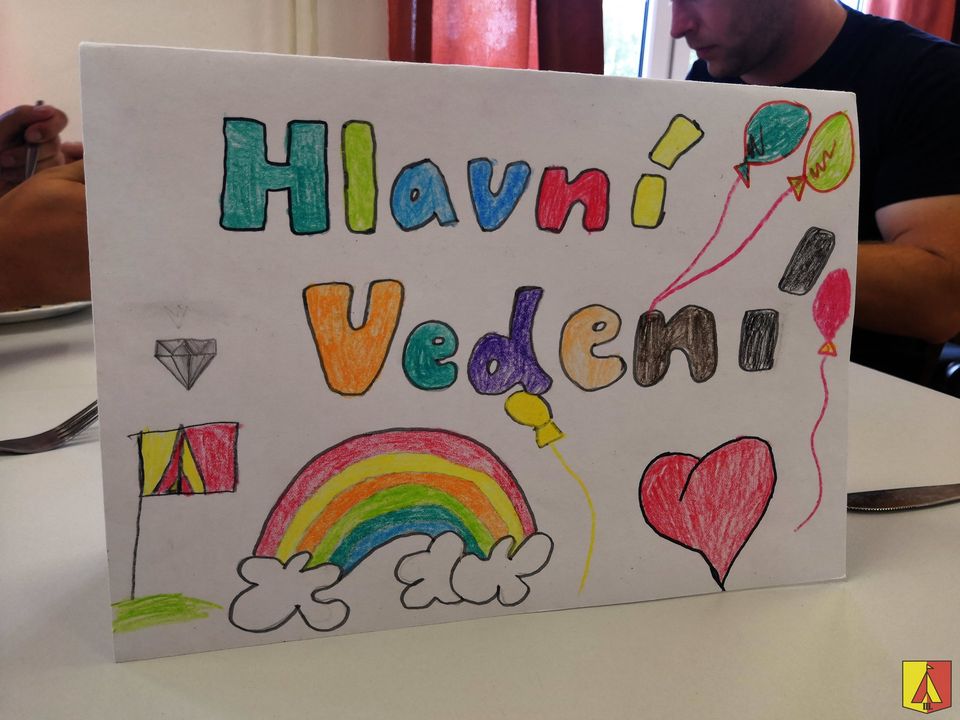 Hlavní
Vedení
III.